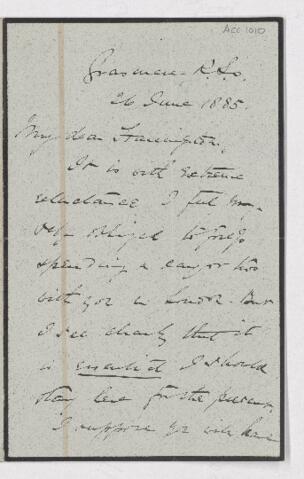 ACC 1010
Grasmere. R.S.O.
26 June 1885.
My dear Harrington,
It is with extreme
reluctance I feel my-
self obliged to forego
spending a day or two
with you in London. But
I see clearly that it
is essential I should
stay here for the present
I suppose you will have